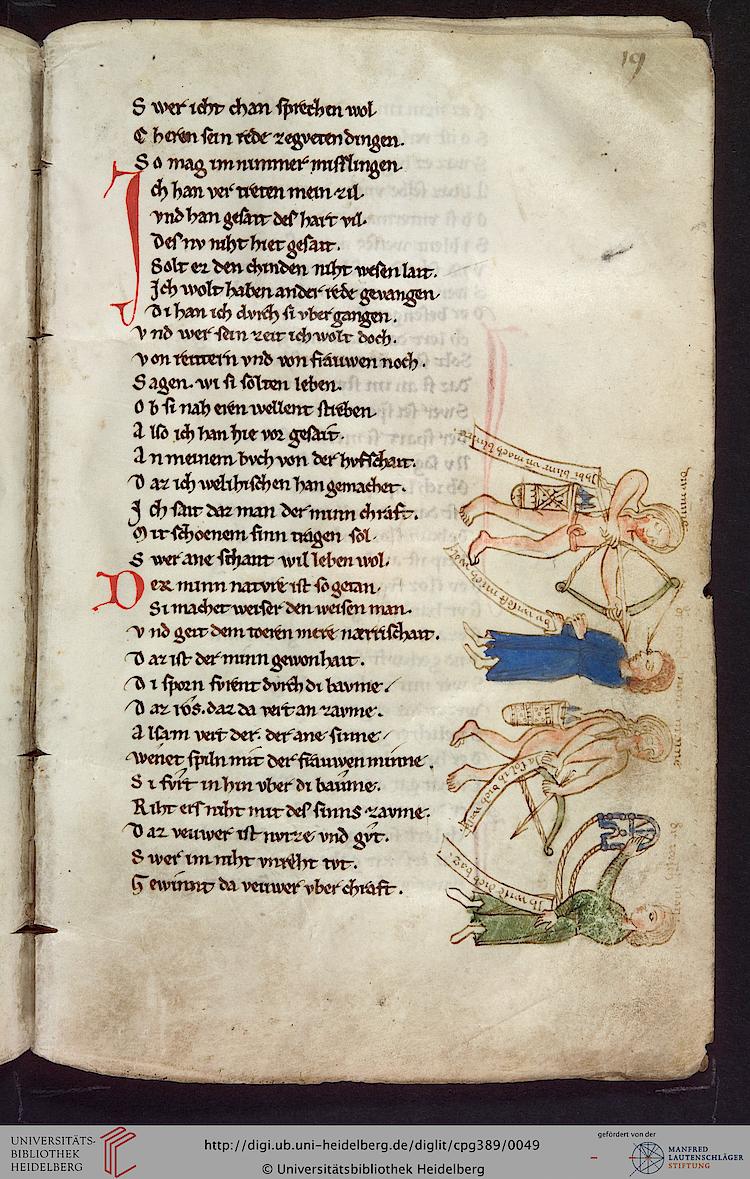 19
Swer icht chan sprechen wol
Cheren sein rede ze gveten dingen.
So mag im nimmer misslingen
Ich han vertreten mein zil.
vnd han gesait des hart vil.
Des nv niht hiet gesait.
Solt ez den chinden niht wesen lait.
Ich wolt haben ander rede gevangen
Di han ich dvrch si vbergangen.
vnd wer sein zeit ich wolt doch.
von reittern vnd von frauwen noch.
Sagen. wi si solten leben.
Ob si nah eren wellent streben
Also ich han hie vor gesait.
An meinem bvch von der hvfschait.
Daz ich welihischen han gemachet.
Ich sait daz man der minn chraft.
Mit schoenem sinn tragen sol.
Swer ane schant wil leben wol.
Der minn natvre ist so getan.
Si machet weiser den weisen man.
vnd geit dem toeren mere nærrischait.
Daz ist der minn gewonhait.
Di sporn fvrent dvrch di bavme.
Daz ros. daz da vert an zavme.
Alsam vert der. der ane sinne
wenet spiln mit der frauwen minne.
Si fvrt in hin vber di baume.
Riht ers niht mit des sinns zavme.
Daz veuwer ist nvtze vnd gvt.
Swer im niht vnreht tvt.
Gewinnt da veuwer vber chraft.
UNIVERSITÄTS-
BIBLIOTHEK
HEIDELBERG
http://digi.ub.uni-heidelberg.de/diglit/cpg389/0049
© Universitätsbibliothek Heidelberg
gefördert von der
MANFRED
LAUTENSCHLÄGER
STIFTUNG